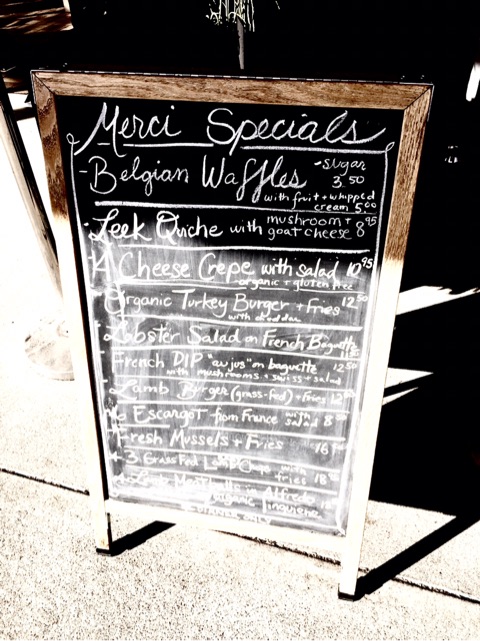 Merci Specials
-Belgian Waffles -Sugar 3.50
with fruit + whipped cream 5.00
Leek Quiche with mushroom + goat cheese 8.95
Cheese Crepe with salad 10.95
organic + gluten free
Organic Turkey Burger + Fries 12.50
with cheddar
Lobster Salad on French Baguette
French DIP "au jus" on baguette 12.50
with mushrooms + swiss + salad
Lamb Burger (grass-fed) + Fries
Escargot from France with salad
Fresh Mussels + Fries 16
3 Grass Fed Lamb with fries 18
Lamb in Alfredo
Organic linguine